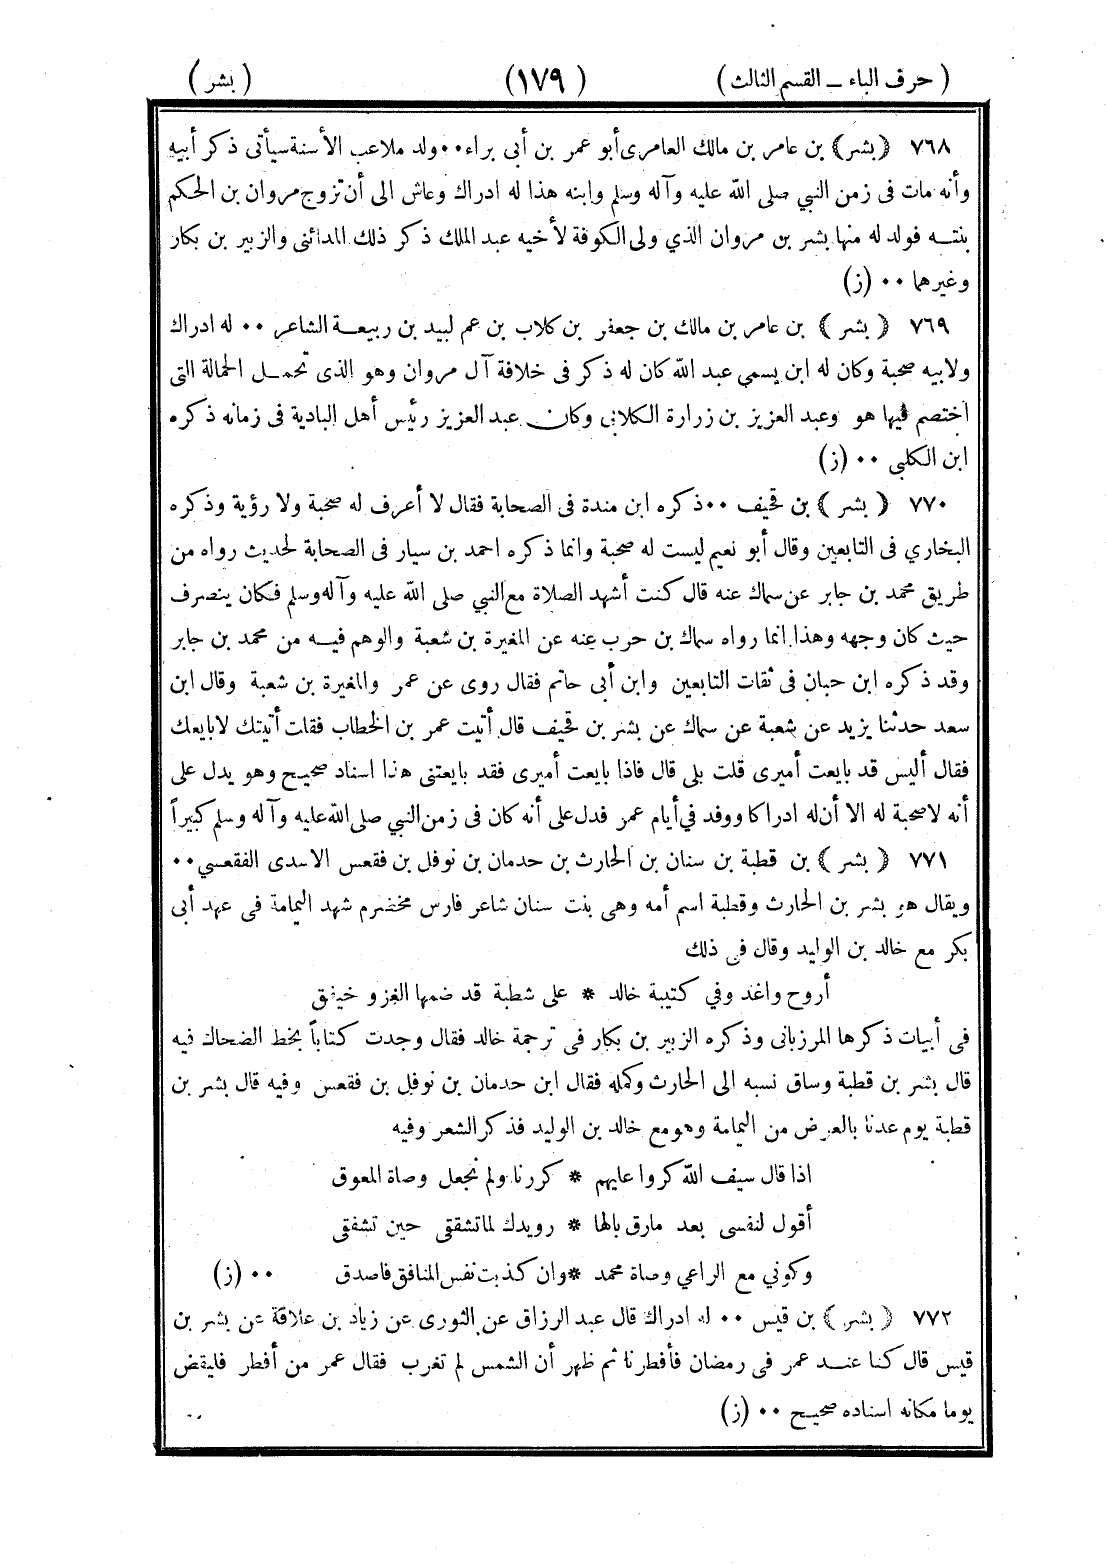 ( حرف الباء ــ القسم الثالث ) (١٧٩ ) ( بشر )
٧٦٨ ﴿بشر﴾ بن عامر بن مالك العامرى أبو عمر بن أبى براء ٠٠ ولد ملاعب الأسنة سيأتى ذكر أبيه
وأنه مات فى زمن النبي صلى الله عليه وآله وسلم وابنه هذا له ادراك وعاش الى أن تزوج مروان بن الحكم
بنتـه فولد له منها بشر بن مروان الذي ولى الكوفة لأخيه عبد الملك ذكر ذلك المدائنى والزبير بن بكار
وغيرهما ٠٠ (ز)
٧٦٩ ﴿ بشر ﴾ بن عامر بن مالك بن جعفر بن كلاب بن عم لبيد بن ربيعـة الشاعر ٠٠ له ادراك
ولابيه صحبة وكان له ابن يسمي عبد الله كان له ذكر فى خلافة آل مروان وهو الذى تحمـل الحمالة التى
اختصم فيها هو وعبد العزيز بن زرارة الكلابى وكان عبد العزيز رئيس أهل البادية فى زمانه ذكره
ابن الكلبي ٠٠ (ز)
٧٧٠ ﴿ بشر ﴾ بن قحيف ٠٠ ذكره ابن مندة فى الصحابة فقال لا أعرف له صحبة ولا رؤية وذكره
البخاري فى التابعين وقال أبو نعيم ليست له صحبة وانما ذكره احمد بن سيار فى الصحابة لحديث رواه من
طريق محمد بن جابر عن سماك عنه قال كنت أشهد الصلاة مع النبي صلى الله عليه وآله وسلم فكان ينصرف
حيث كان وجهه وهذا انما رواه سماك بن حرب عنه عن المغيرة بن شعبة والوهم فيـه من محمد بن جابر
وقد ذكره ابن حبان فى ثقات التابعين وابن أبى حاتم فقال روى عن عمر والمغيرة بن شعبة وقال ابن
سعد حدثنا يزيد عن شعبة عن سماك عن بشر بن قحيف قال أتيت عمر بن الخطاب فقلت أتيتك لابايعك
فقال أليس قد بايعت أميرى قلت بلى قال فاذا بايعت أميرى فقد بايعتنى هذا اسناد صحيح وهو يدل على
أنه لا صحبة له الا أن له ادراكا ووفد في أيام عمر فدل على أنه كان فى زمن النبي صلى الله عليه وآله وسلم كبيراً
٧٧١ ﴿ بشر ﴾ بن قطبة بن سنان بن الحارث بن حدمان بن نوفل بن فقعس الاسدى الفقعسي ٠٠
ويقال هو بشر بن الحارث وقطبة اسم أمه وهى بنت سنان شاعر فارس مخضرم شهد اليمامة فى عهد أبى
بكر مع خالد بن الوليد وقال فى ذلك
أروح واغد وفي كتيبة خالد * على شطبة قد ضمها الغزو خيفق
فى أبيات ذكرها المرزبانى وذكره الزبير بن بكار فى ترجمة خالد فقال وجدت كتاباً بخط الضحاك فيه
قال بشر بن قطبة وساق نسبه الى الحارث وكمله فقال ابن حدمان بن نوفل بن فقعس وفيه قال بشر بن
قطبة يوم عدنا بالعرض من اليمامة وهو مع خالد بن الوليد فذكر الشعر وفيه
اذا قال سيف الله كروا عليهم * كررنا ولم نجعل وصاة المعوق
أقول لنفسى بعد مارق بالها * رويدك لما تشفقى حين تشفقى
وكوني مع الراعي وصاة محمد * وان كذبت نفس المنافق فاصدق ٠٠ (ز)
٧٧٢ ﴿ بشر ﴾ بن قيس ٠٠ له ادراك قال عبد الرزاق عن الثورى عن زياد بن علاقة عن بشر بن
قيس قال كنا عنـد عمر فى رمضان فأفطرنا ثم ظهر أن الشمس لم تغرب فقال عمر من أفطر فليقض
يوما مكانه اسناده صحيح ٠٠ (ز)